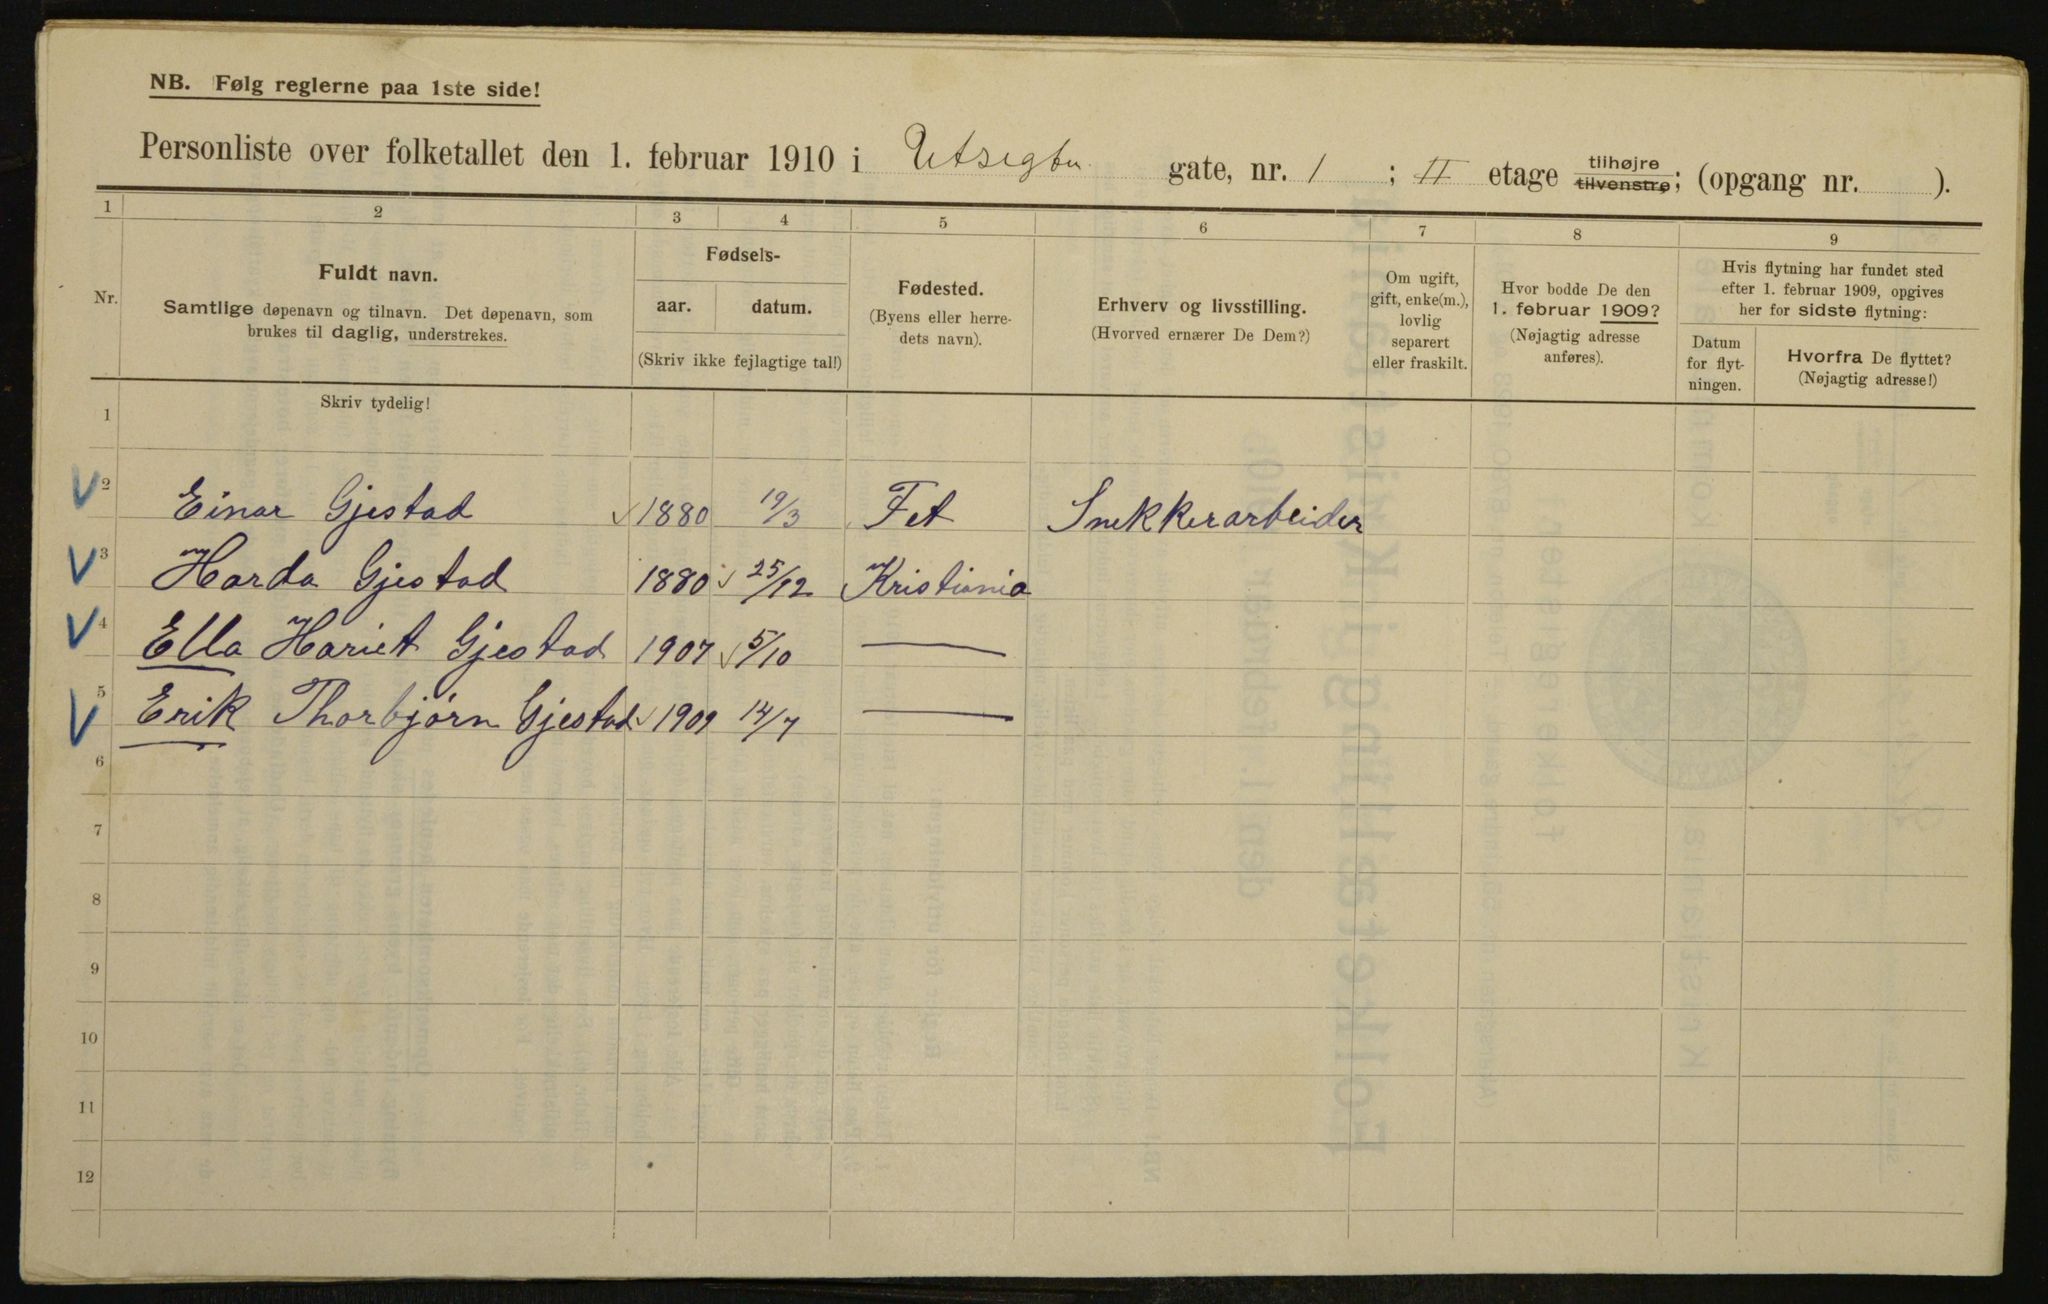 NB. Følg reglerne paa 1ste side!
Personliste over folketallet den 1. februar 1910 i Utsigtn gate, nr. 1 ; II etage tilhøjre tilvenstre; (opgang nr. ).
1 2 3 4 5 6 7 8 9
Nr.
Fuldt navn.
Samtlige døpenavn og tilnavn. Det døpenavn, som
brukes til daglig, understrekes.
Fødsels-
aar. datum.
(Skriv ikke fejlagtige tal!)
Fødested.
(Byens eller herre-
dets navn).
Erhverv og livsstilling.
(Hvorved ernærer De Dem?)
Om ugift,
gift, enke(m.),
lovlig
separert
eller fraskilt.
Hvor bodde De den
1. februar 1909?
(Nøjagtig adresse
anføres).
Hvis flytning har fundet sted
efter 1. februar 1909, opgives
her for sidste flytning:
Datum
for flyt-
ningen.
Hvorfra De flyttet?
(Nøjagtig adresse!)
Skriv tydelig!
1
2 Einar Gjestad 1880 19/3 Fet Snekkerarbeider
3 Harda Gjestad 1880 25/12 Kristiania
4 Ella Hariet Gjestad 1907 5/10 —
5 Erik Thorbjørn Gjestad 1909 14/7 —
6
7
8
9
10
11
12